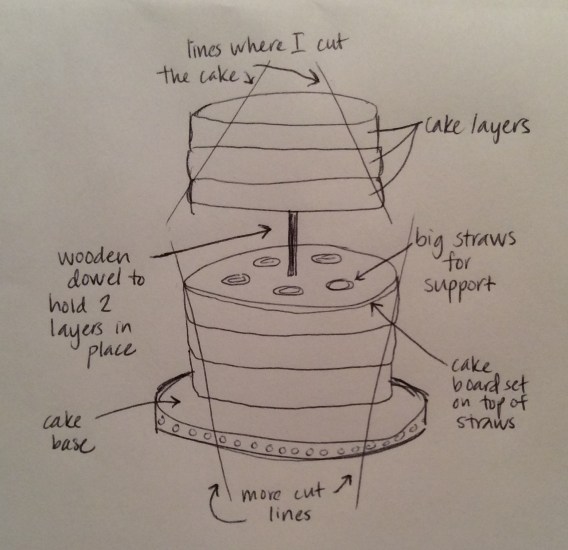 lines where I cut
the cake
cake layers
wooden
dowel to
hold 2
layers in
place
big straws
for
support
cake
board set
on top of
straws
cake
base
more cut
lines